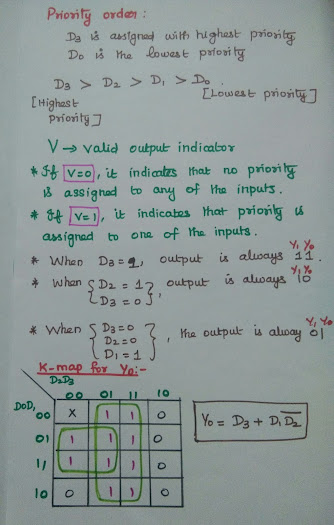 Priority order :
D3 is assigned with highest priority
D0 is the lowest priority
D3 > D2 > D1 > D0.
[Highest priority]
[Lowest priority]
V → valid output indicator
* If V=0, it indicates that no priority
is assigned to any of the inputs.
* If V=1, it indicates that priority is
assigned to one of the inputs.
Y1 Y0
* When D3=1, output is always 11.
Y1 Y0
* When { D2 = 1 D3 = 0 }, output is always 10
Y1 Y0
* When { D3=0 D2=0 D1=1 }, the output is alway 01
K-map for Y0:-
D2D3
D0D1 00 01 11 10
00 X 1 1 0
01 1 1 1 0
11 1 1 1 0
10 0 1 1 0
Y0 = D3 + D1 D̅2̅